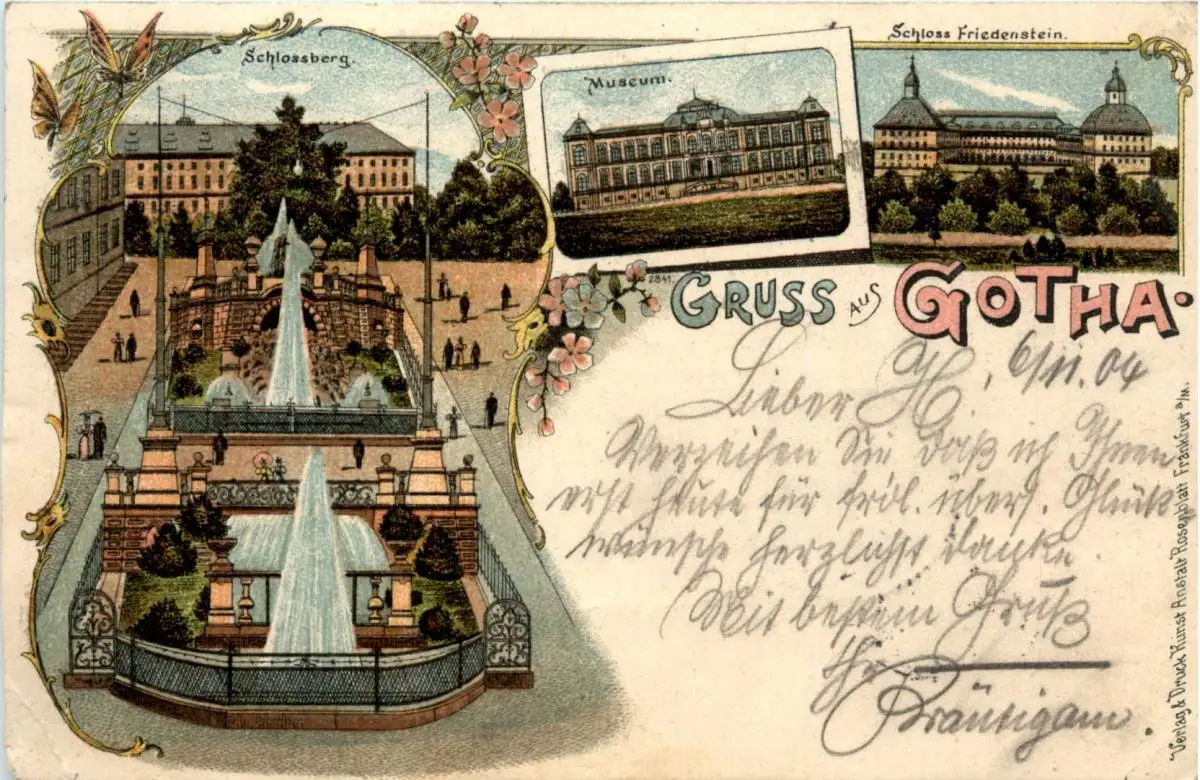 Schlossberg.
Museum.
Schloss Friedenstein.
2841.
GRUSS AUS GOTHA.
Lieber H., 6/11.04
Verzeihen Sie daß ich Ihnen
erst heute für frdl. übers. Glück
wünsche herzlichst danke.
Mit bestem Gruß
Ihr
Bräutigam.
Verlag & Druck Kunst Anstalt Rosenblatt Frankfurt a/M.